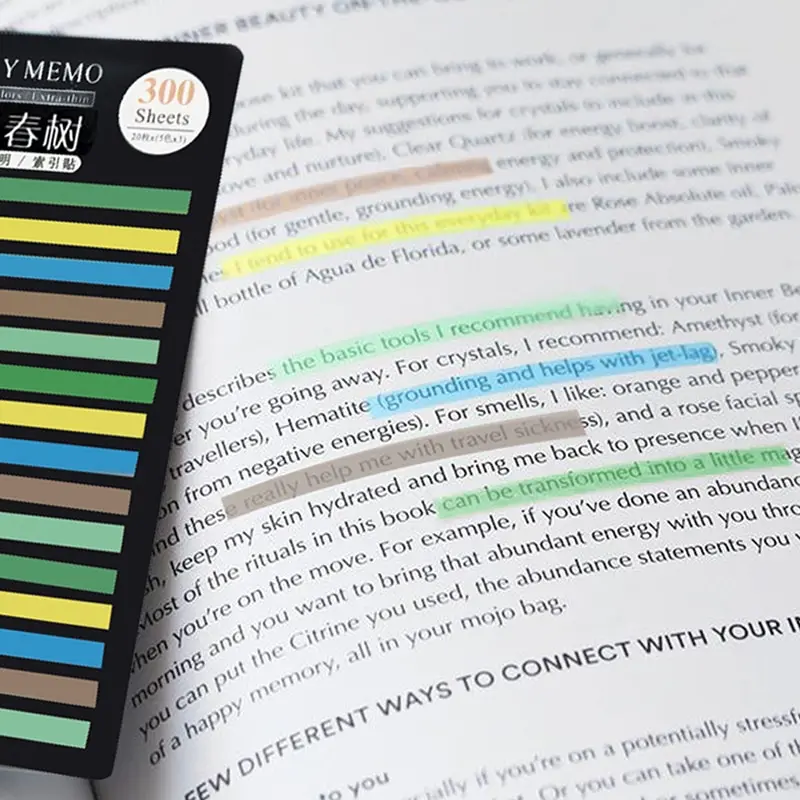 Y MEMO
lors / Extra-thin
春树
明 / 索引貼
300
Sheets
20枚x(5色x3)
INNER BEAUTY ON THE
kit that you can bring to work, or generally for
during the day, supporting you to stay connected to that
ryday life. My suggestions for crystals to include in this
ove and nurture), Clear Quartz (for energy boost, clarity of
energy and protection), Smoky
od (for gentle, grounding energy). I also include some inner
I tend to use for this everyday kit are Rose Absolute oil, Palo
ll bottle of Agua de Florida, or some lavender from the garden.
describes the basic tools I recommend having in your Inner Be
er you're going away. For crystals, I recommend: Amethyst (for
travellers), Hematite (grounding and helps with jet-lag), Smoky
on from negative energies). For smells, I like: orange and pepper
nd these really help me with travel sickness), and a rose facial sp
sh, keep my skin hydrated and bring me back to presence when I
Most of the rituals in this book can be transformed into a little mag
hen you're on the move. For example, if you've done an abundanc
morning and you want to bring that abundant energy with you thro
you can put the Citrine you used, the abundance statements you w
of a happy memory, all in your mojo bag.
FEW DIFFERENT WAYS TO CONNECT WITH YOUR IN
to you
cially if you're on a potentially stressf
Or you can take one of th
or sometimes